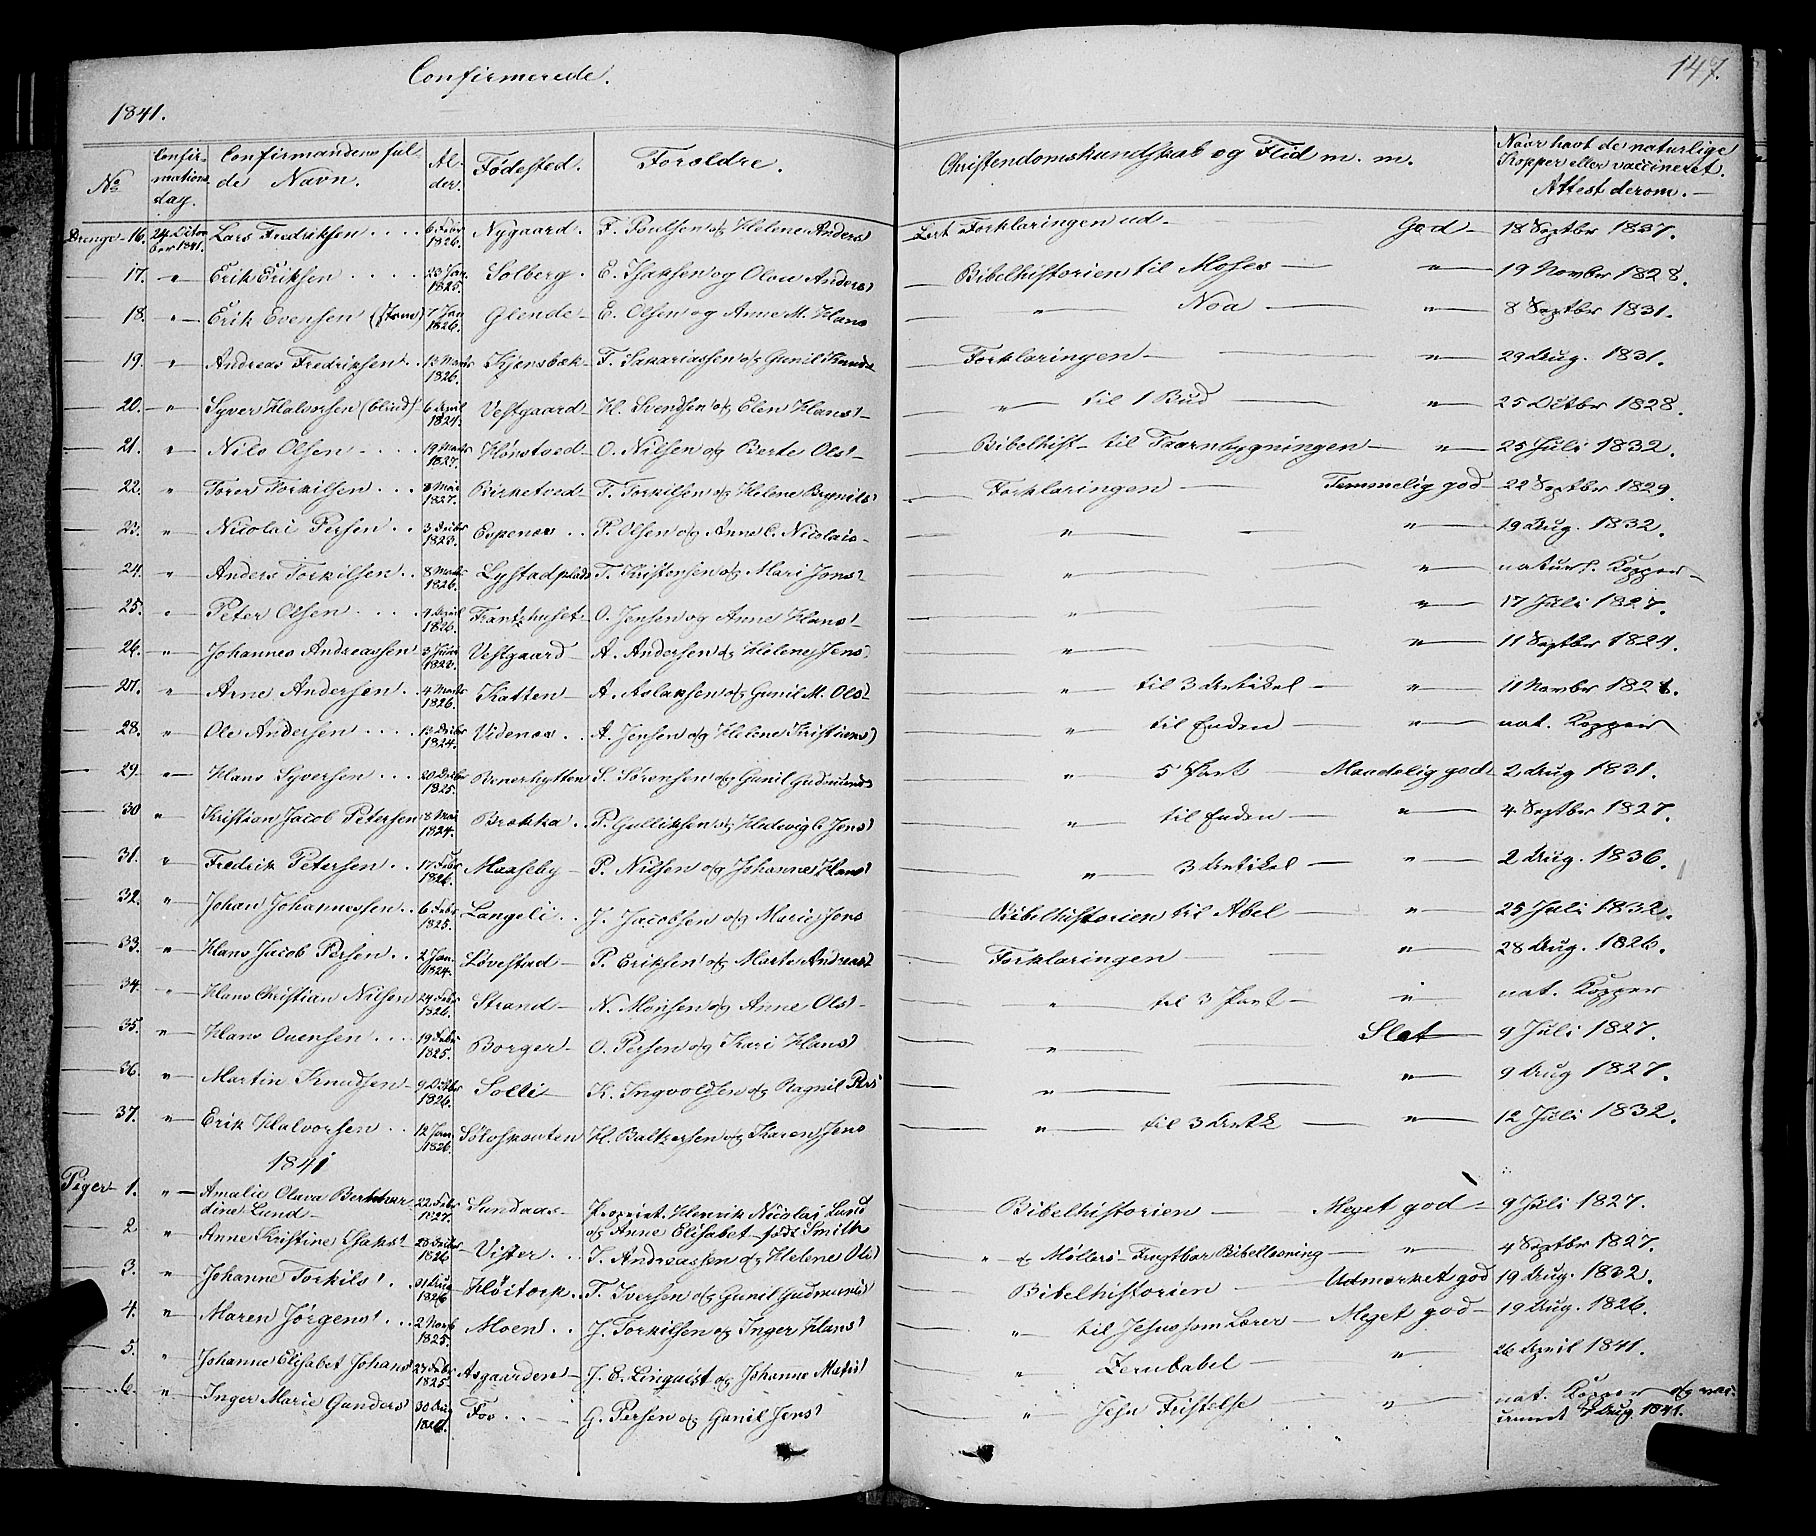 147.
Confirmerede.
1841.
No Confirmations dag. Confirmandens fulde Navn. Alder. Fødested. Forældre. Christendomskundskab og Flid m. m. Naar havt de naturlige Kopper eller vaccineret. Attest derom.
Drenge 16. 24 October 1841. Lars Fredriksen 6 Febr 1826. Nygaard F. Poulsen og Helene Anders Lært Forklaringen ud God 18 Septbr 1837.
17. " Erik Eriksen 23 Jan 1825. Solberg E. Isaksen og Olea Anders Bibelhistorien til Moses " 19 Novbr 1828.
18. " Erik Evensen 7 Jan 1826. Glende E. Olsen og Anne M. Hans " Noa " 8 Septbr 1831.
19. " Andreas Fredriksen 12 Marts 1826. Kjensbæk F. Sakariassen og Gunil Knuds Forklaringen " 29 Aug. 1831.
20. " Syver Halvorsen (blind) 6 April 1824. Vestgaard H. Svendsen og Elen Hans " til 1 Bud " 25 Octbr 1828.
21. " Nils Olsen 19 Marts 1827. Hønstved O. Nilsen og Berte Ols Bibelhist til Taarnbygningen " 25 Juli 1832.
22. " Torer Torkilsen 8 Mai 1827. Birketved T. Torkilsen og Helene Brynils Forklaringen Temmelig god 22 Septbr 1829.
23. " Nicolai Persen 3 Decbr 1825. Espenes P. Olsen og Anne C. Nicolais " " 19 Aug. 1832.
24. " Anders Torkilsen 8 Marts 1826. Lystad plads T. Kristensen og Mari Jens " " naturl. Kopper
25. " Peter Olsen 4 April 1826. Frantzhuset O. Jensen og Anne Hans " " 17 Juli 1827.
26. " Johannes Andreassen 3 Juni Vestgaard A. Andersen og Helene Jens " " 11 Septbr
27. " Arne Andersen 4 Marts 1826. Katten A. Aslaksen og Gunil M. Ols " til 3 Artikel " 11 Novbr
28. " Ole Andersen 13 Decbr 1824. Videnes A. Jensen og Helene Kristians " til Enden " nat. Kopper
29. " Hans Syversen 20 Decbr 1825. Benerhytten S. Sørensen og Gunil Gudmunds " 5 Part Maadelig god 2 Aug 1831.
30 " Kristian Jacob Petersen 8 Mai 1824. Brekka P. Gulliksen og Hedwig L. Jens " til Enden " 4 Septbr 1827.
31. " Fredrik Petersen 17 Febr 1826. Maseby P. Nilsen og Johanne Hans " 3 Artikel " 2 Aug. 1836.
32. " Johan Johannessen 6 Febr 1825. Langeli J. Jacobsen og Marie Jens Bibelhistorien til Abel " 25 Juli 1832.
33. " Hans Jacob Persen 2 Jan. 1824. Løvestad P. Eriksen og Marte Andreas Forklaringen " 28 Aug. 1826.
34. " Hans Christian Nilsen 24 Febr 1826. Strand N. Monsen og Anne Ols " til 3 Part " nat. Kopper
35. " Hans Ouensen 19 Febr 1825. Borger O. Persen og Kari Hans " Slet 9 Juli 1827.
36. " Martin Knudsen 9 Octbr 1826. Solli K. Ingvoldsen og Ragnil Pers " " 9 Aug 1827.
37. " Erik Halvorsen 12 Jan. 1826. Sølvskuten H. Baltzersen og Karen Jens " til 3 Artk " 12 Juli 1832.
1841
Piger 1. " Amalie Olava Bernhardine Lund 22 Febr 1827. Sundaas Propriet. Henrik Nicolai Lund og Anne Elisabet født Smith Bibelhistorien Meget god 9 Juli 1827.
2. " Anne Kristine Isaks 23 Decbr 1826 Vister I. Andreassen og Helene Ols " & Møllers Frugtbar Bibellesning " 4 Septbr 1827.
3. " Johanne Torkils 31 Aug 1826 Høitorp T. Iversen og Gunil Gudmunds Bibelhistorien Udmærket god 19 Aug. 1832.
4. " Maren Jørgens 2 Novb 1825. Moen J. Torkilsen og Inger Hans " til Jesus som Lærer Meget god 19 Aug. 1826.
5. " Johanne Elisabet Johans 27 Febr 1825. Asgaarden J. E. Linquist og Johanne Matis " Zerubabel " 26 April 1841.
6. " Inger Marie Gunders 30 Aug 1826. Fos G. Persen og Gunil Jens " Jesu Fristelse " nat. Kopper og vaccineret 7 Aug. 1841.